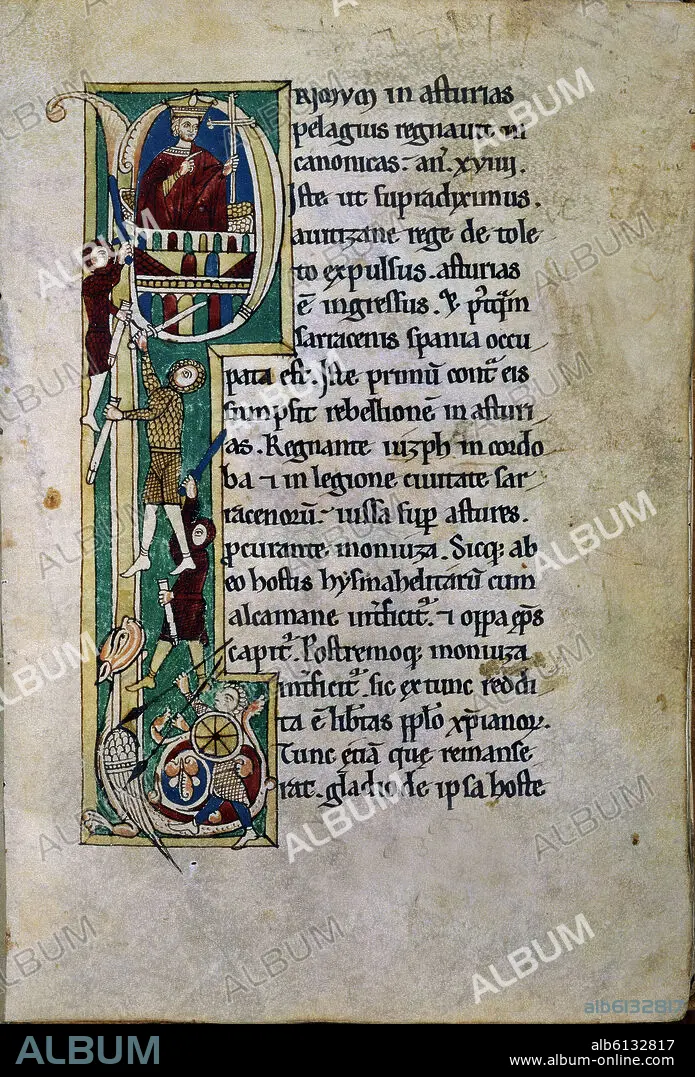 PRIMUM in asturias
pelagius regnauit in
canonicas. an̄. xviiij.
Iste ut supradiximus.
a uitizane rege de tole
to expulsus. asturias
ē ingressus. Et
sarracenis spania occu
pata est. Iste primū cont̄ eis
sumpsit rebellionē in asturi
as. Regnante iuzph in cordo
ba et in legione ciuitate sar
racenorū. iussa sup̄ astures.
p̄curante moniuza. Sicq; ab
eo hostis hysmahelitarū cum
alcamane int̄ficit᷒. et oppa ep̄s
capit᷒. Postremoq; moniuza
int̄ficit᷒. sic ex tunc reddi
ta ē libertas pplo xp̄ianoꝝ.
Tunc etiā que remanse
rat. gladio de ipsa hoste
ALBUM
alb6132817
ALBUM
alb6132817
www.album-online.com